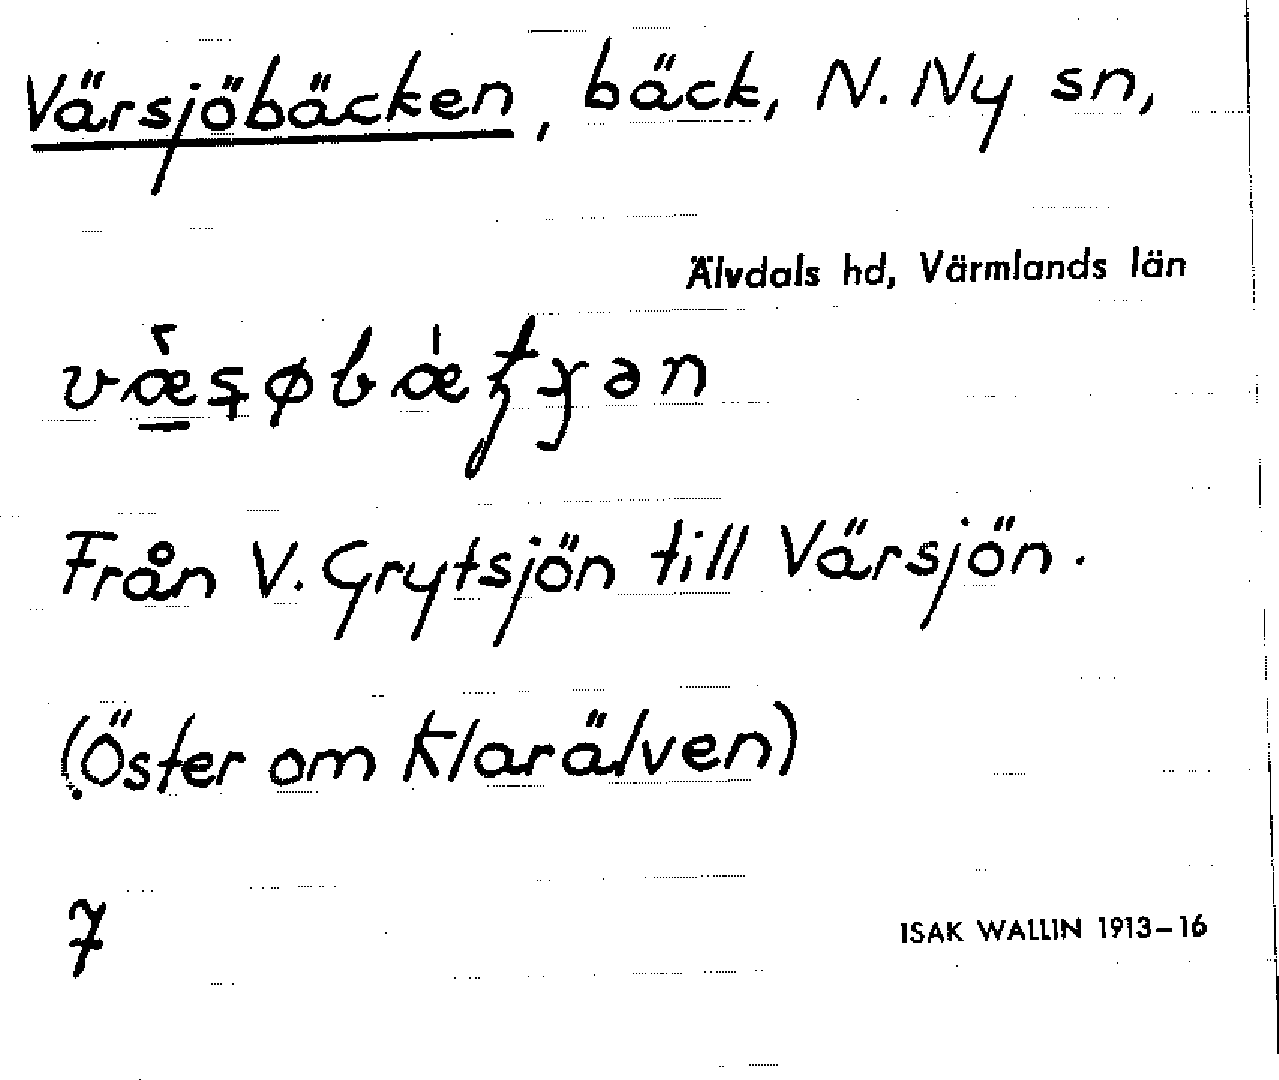 Värsjöbäcken, bäck, N. Ny sn,
Älvdals hd, Värmlands län
Från V. Grytsjön till Värsjön.
(Öster om Klarälven)
7
ISAK WALLIN 1913–16